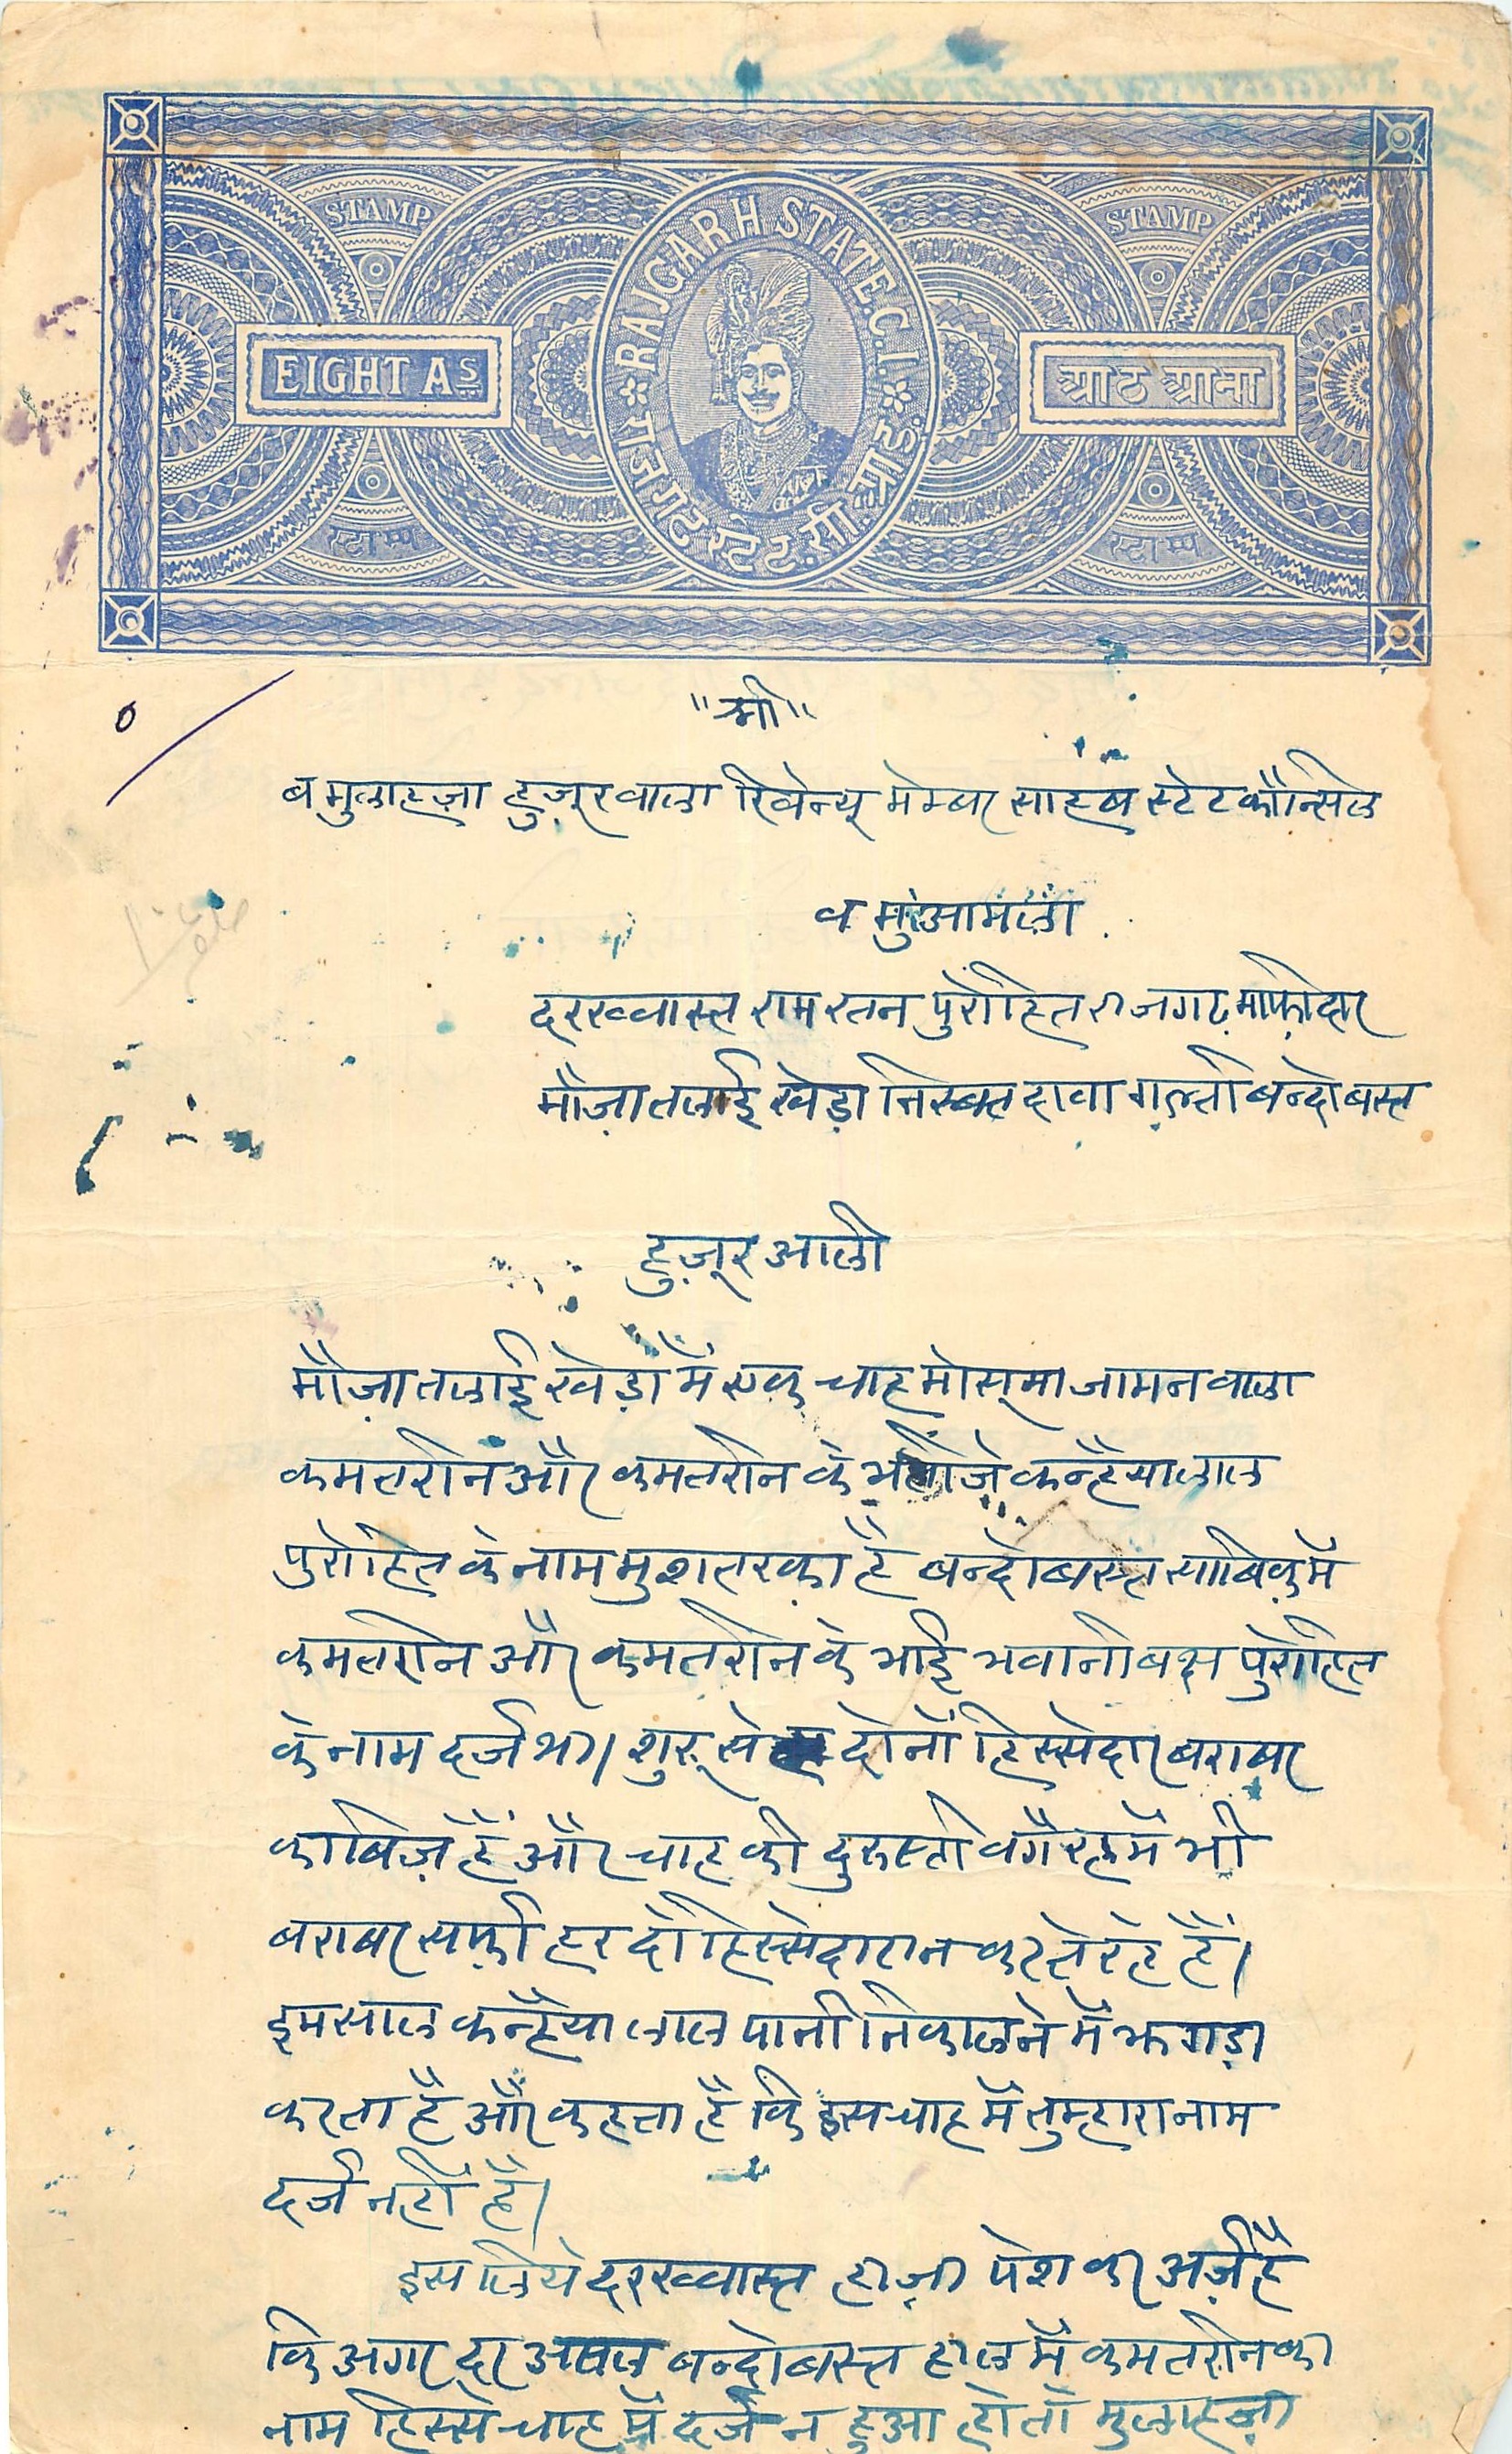 STAMP
STAMP
RAJGARH STATE. C. I.
EIGHT AS
आठ आना
राजगढ स्टेट. सी. आई.
स्टाम्प
स्टाम्प
"श्री"
ब मुलाहज़ा हुज़ूर वाला रिवेन्यू मेम्बर साहब स्टेट कौन्सिल
व मुआमला
दरख्वास्त राम रतन पुरोहित राजगढ़ माफ़ीदार
मौज़ा तलाई खेड़ा निस्बत दावा ग़ल्ती बन्दोबस्त
हुज़ूर आली
मौज़ा तलाई खेड़ा में एक चाह मोसूमा जामन वाला
कमतरीन और कमतरीन के भतीजे कन्हैयालाल
पुरोहित के नाम मुशतरका है बन्दोबस्त साबिक़ में
कमतरीन और कमतरीन के भाई भवानी बक्ष पुरोहित
के नाम दर्ज था। शुरू से दोनों हिस्सेदार बराबर
काबिज़ हैं और चाह की दुरुस्ती वगैरह में भी
बराबर सर्फ़ा हर दो हिस्सेदारान करते रहे हैं।
इमसाल कन्हैया लाल पानी निकालने में झगड़ा
करता है और कहता है कि इस चाह में तुम्हारा नाम
दर्ज नहीं है।
इस लिये दरख्वास्त हाज़ा पेश कर अर्ज़ है
कि अगर दर बन्दोबस्त हाल में कमतरीन का
नाम हिस्से चाह में दर्ज न हुआ हो तो मुलाहज़ा